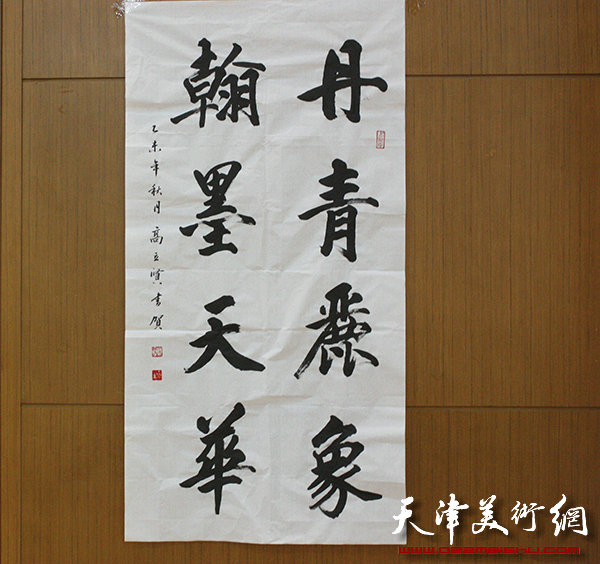 丹青麗象
翰墨天華
乙未年秋月高立賢書賀
天津美術網